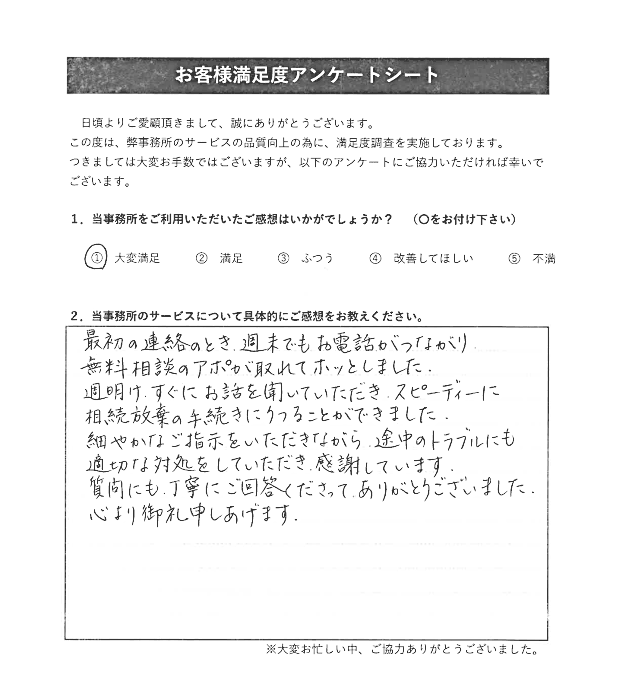 お客様満足度アンケートシート
日頃よりご愛顧頂きまして、誠にありがとうございます。
この度は、弊事務所のサービスの品質向上の為に、満足度調査を実施しております。
つきましては大変お手数ではございますが、以下のアンケートにご協力いただければ幸いで
ございます。
1．当事務所をご利用いただいたご感想はいかがでしょうか？　（〇をお付け下さい）
① 大変満足　② 満足　③ ふつう　④ 改善してほしい　⑤ 不満
2．当事務所のサービスについて具体的にご感想をお教えください。
最初の連絡のとき、週末でもお電話がつながり、
無料相談のアポが取れてホッとしました。
週明け、すぐにお話を聞いていただき、スピーディーに
相続放棄の手続きにうつることができました。
細やかなご指示をいただきながら、途中のトラブルにも
適切な対処をしていただき、感謝しています。
質問にも、丁寧にご回答くださって、ありがとうございました。
心より御礼申しあげます。
※大変お忙しい中、ご協力ありがとうございました。